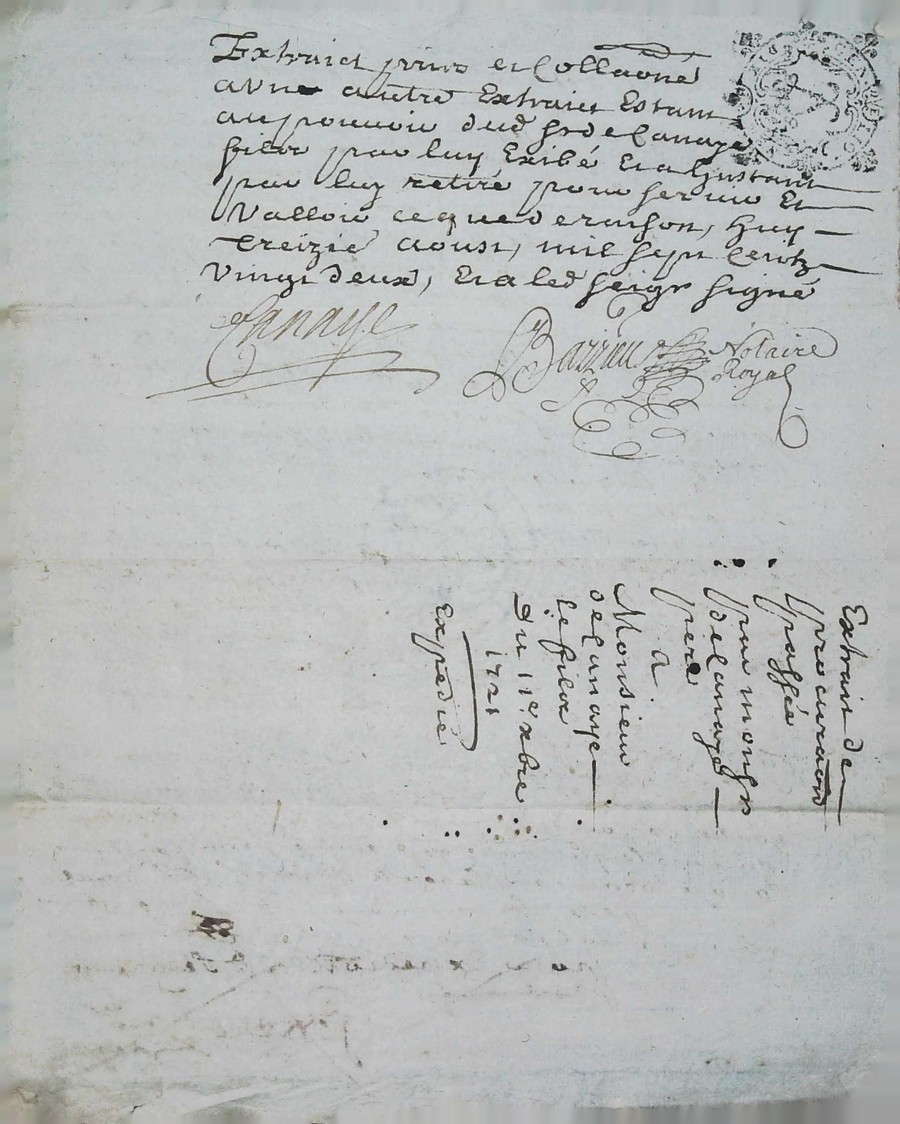 Extraict prins et Collaoné
avne autre Extraict Estant
au pouuoir dud sr de Canaye
filz par luy Exibé Et a Linstant
par luy retiré pour seruir Et
Valloir ce que de raison, huy
treizie aoust, mil sept Centz
vingt deux, Et a led seigr signé
Canaye
Notaire
Royal
Extrait de
procuraon
passée
par monsr
Delanaye
pere
A
Monsieur
delanaye
le filz
Du 11e xbre
1721
Expedié